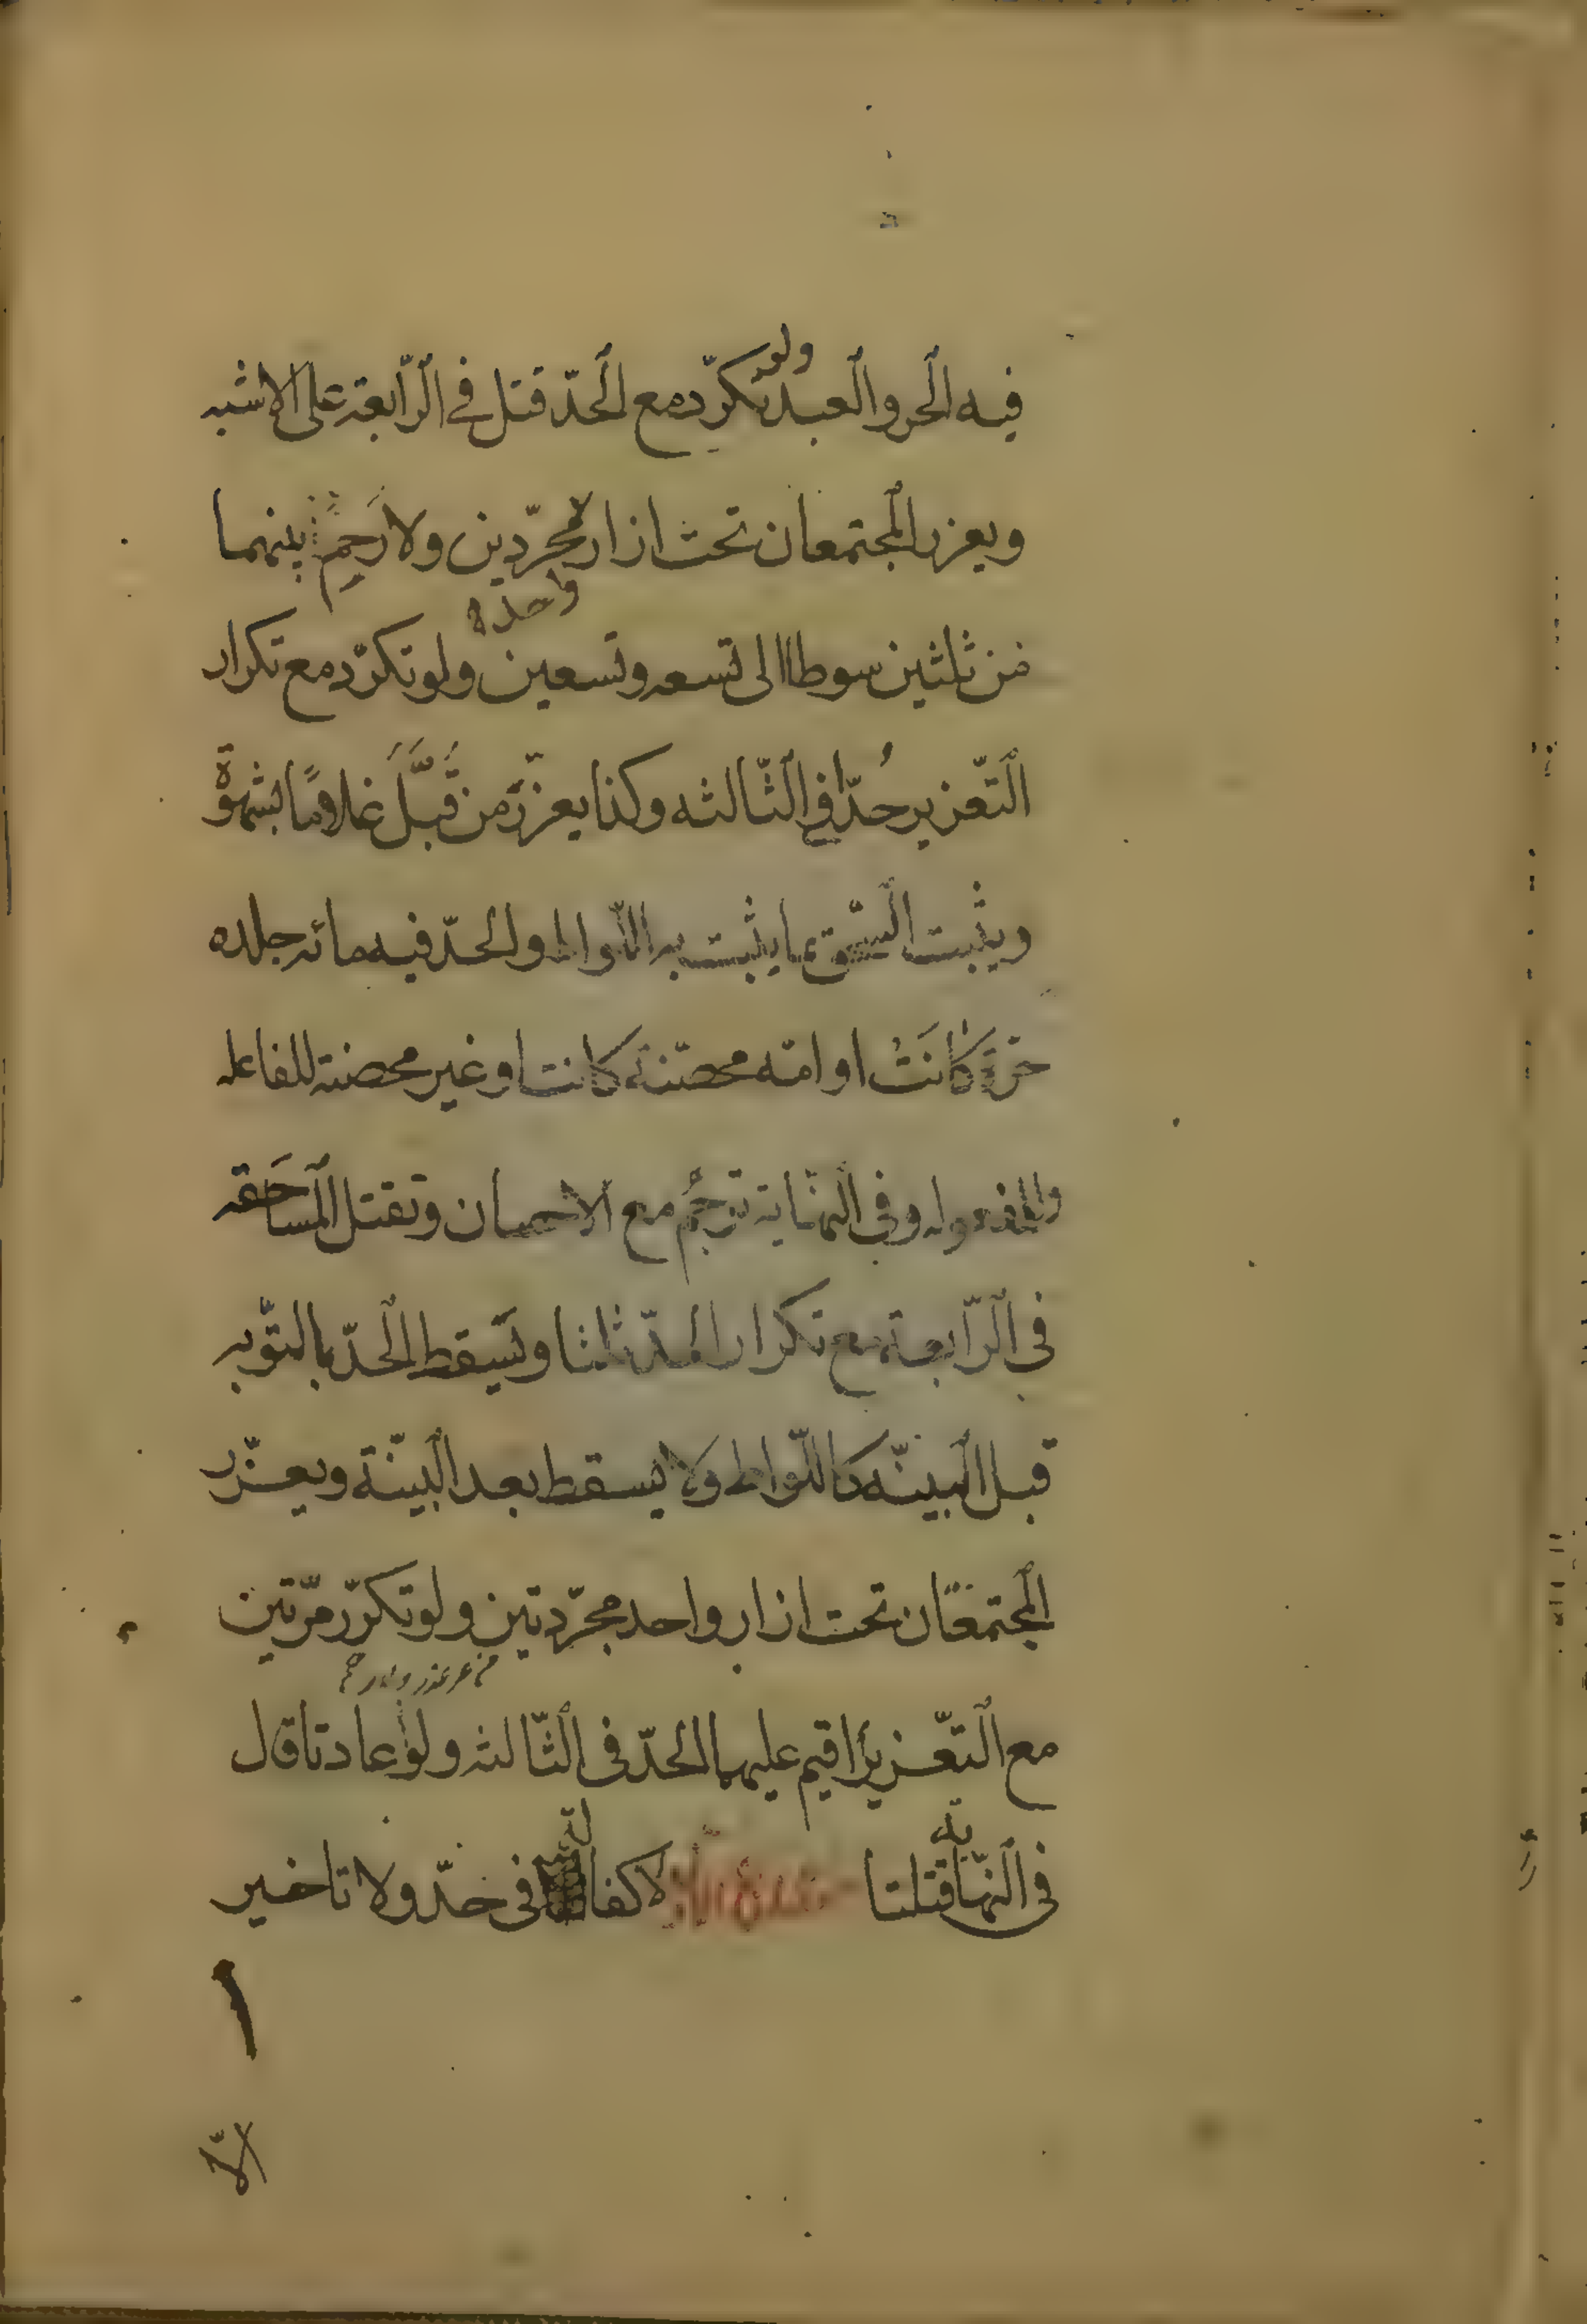 فيه الحر والعبد ولو تكرّر مع الحدّ قتل في الرّابعة على الاشبه
ويعزر المجتمعان تحت ازار مجرّدين ولا رحم بينهما
واحد
من ثلثين سوطا الى تسعه وتسعين ولو تكرّر مع تكرار
التّعزير حُدّا في الثّالثه وكذا يعزّر من قبّلَ غلامًا بشهوة
ويثبت السّحق بما يثبت به اللّواط والحدّ فيه مائه جلده
حرّة كانَتْ او امه محصنة كانت او غير محصنة للفاعله
والمفعوله وفي النّهاية ترجُم مع الاحصان وتقتل المساحَقه
في الرّابعة مع تكرار الحدّ ثلثا ويَسقط الحدّ بالتّوبه
قبل البينّه كاللّواط ولا يسقط بعد البيّنة ويعزّر
المجتمعتان تحت ازار واحد مجرّدتين ولو تكرّر مرّتين
مع التّعزير اقيم عليهما الحدّ في الثّالثه ولو عادتا قال
في النّهاية قتلتا لا كفالة في حدّ ولا تاخير
الّا